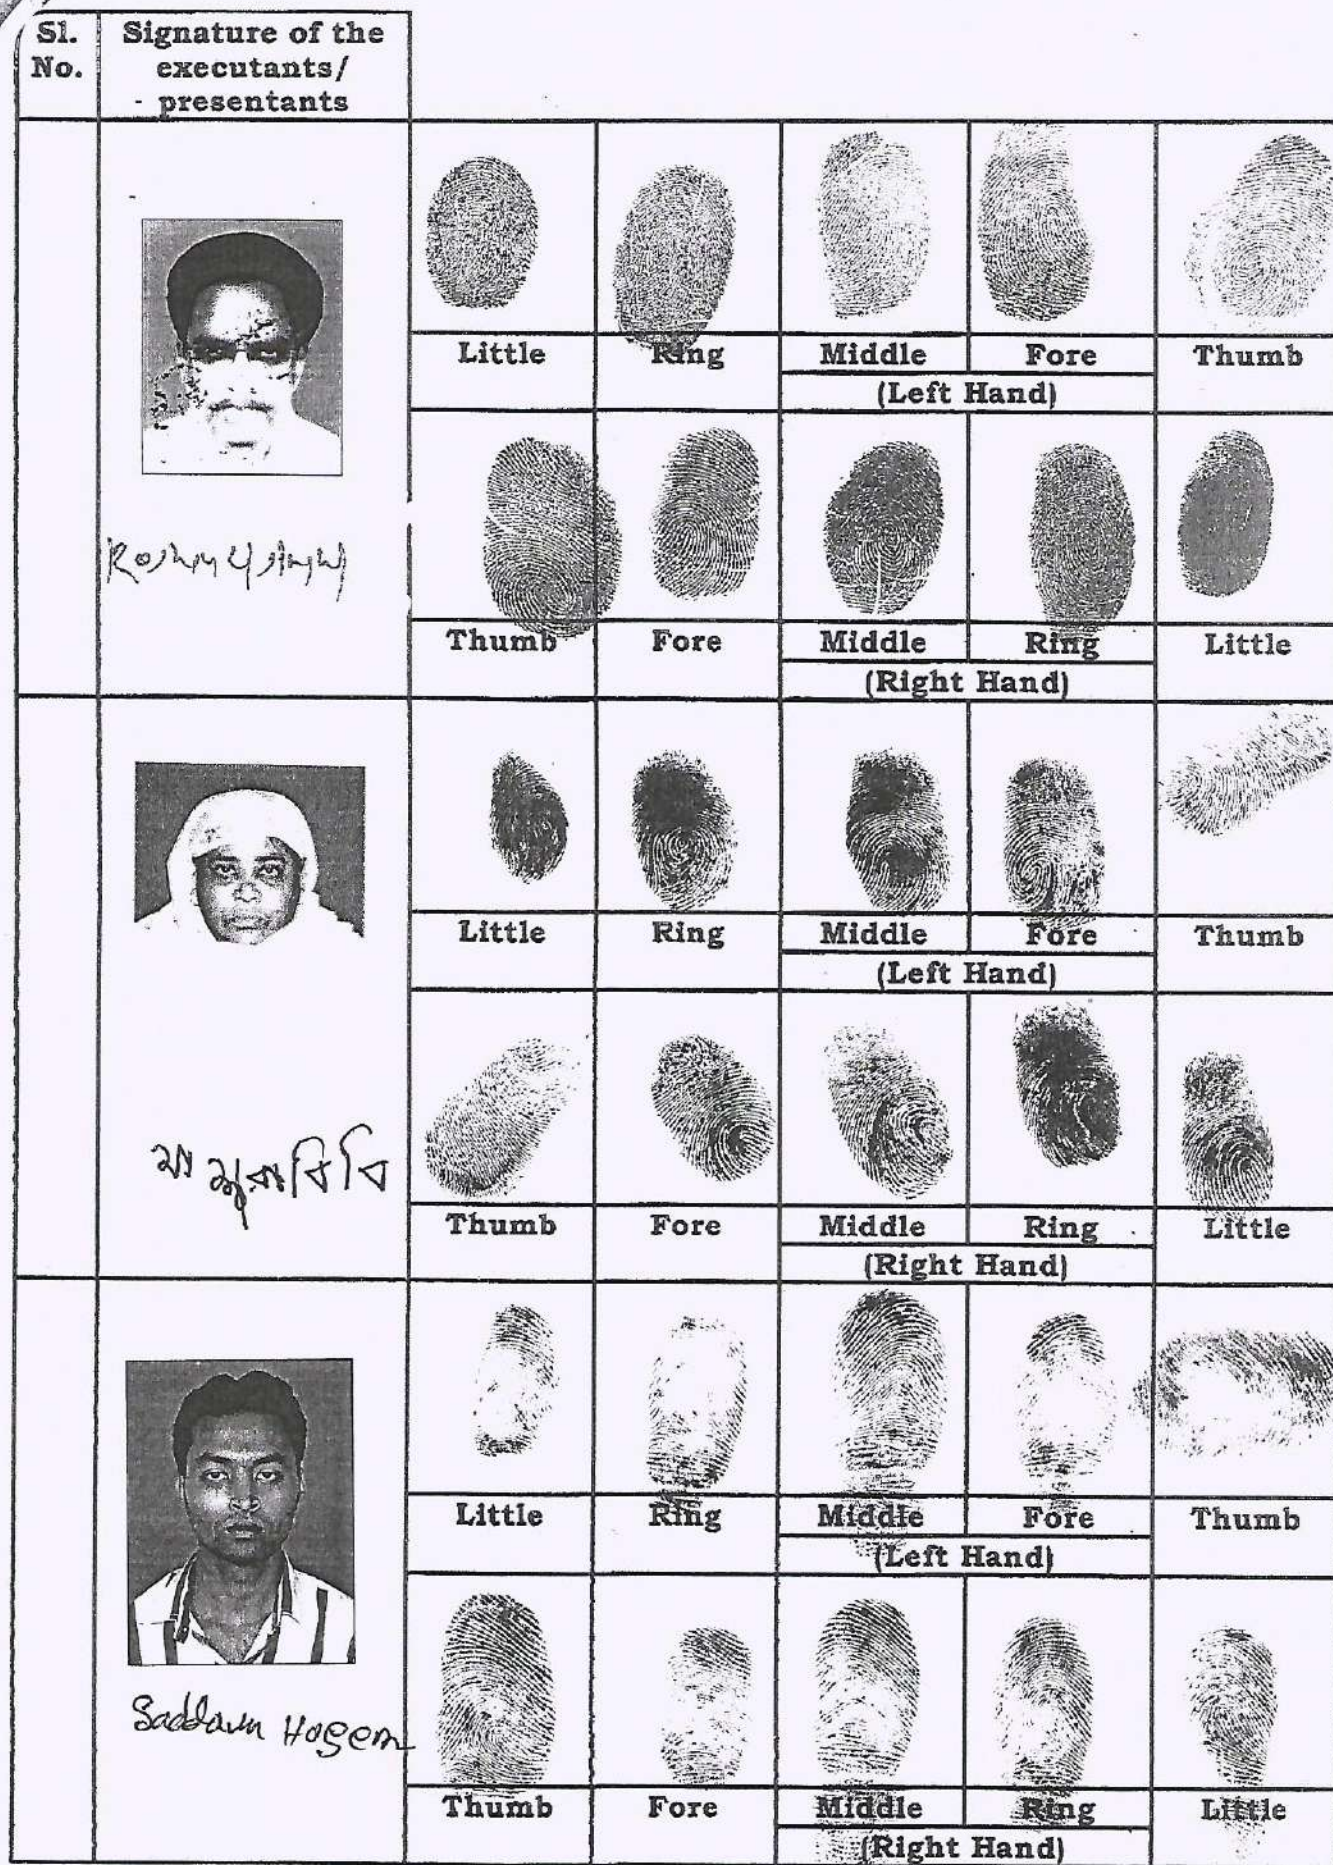 Sl. No.
Signature of the
executants/
presentants
Little Ring Middle Fore Thumb
(Left Hand)
Thumb Fore Middle Ring Little
(Right Hand)
Little Ring Middle Fore Thumb
(Left Hand)
বিবি
Thumb Fore Middle Ring Little
(Right Hand)
Little Ring Middle Fore Thumb
(Left Hand)
Saddam Hosem
Thumb Fore Middle Ring Little
(Right Hand)